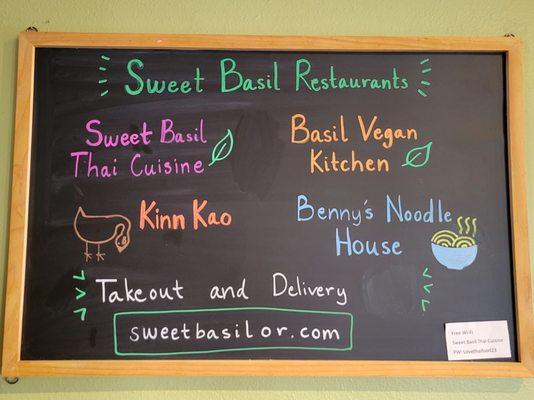 Sweet Basil Restaurants
Sweet Basil
Thai Cuisine
Basil Vegan
Kitchen
Kinn Kao
Benny's Noodle
House
Takeout and Delivery
sweetbasilor.com
Free Wi-Fi
Sweet Basil Thai Cuisine
PW: Lovethaifood23